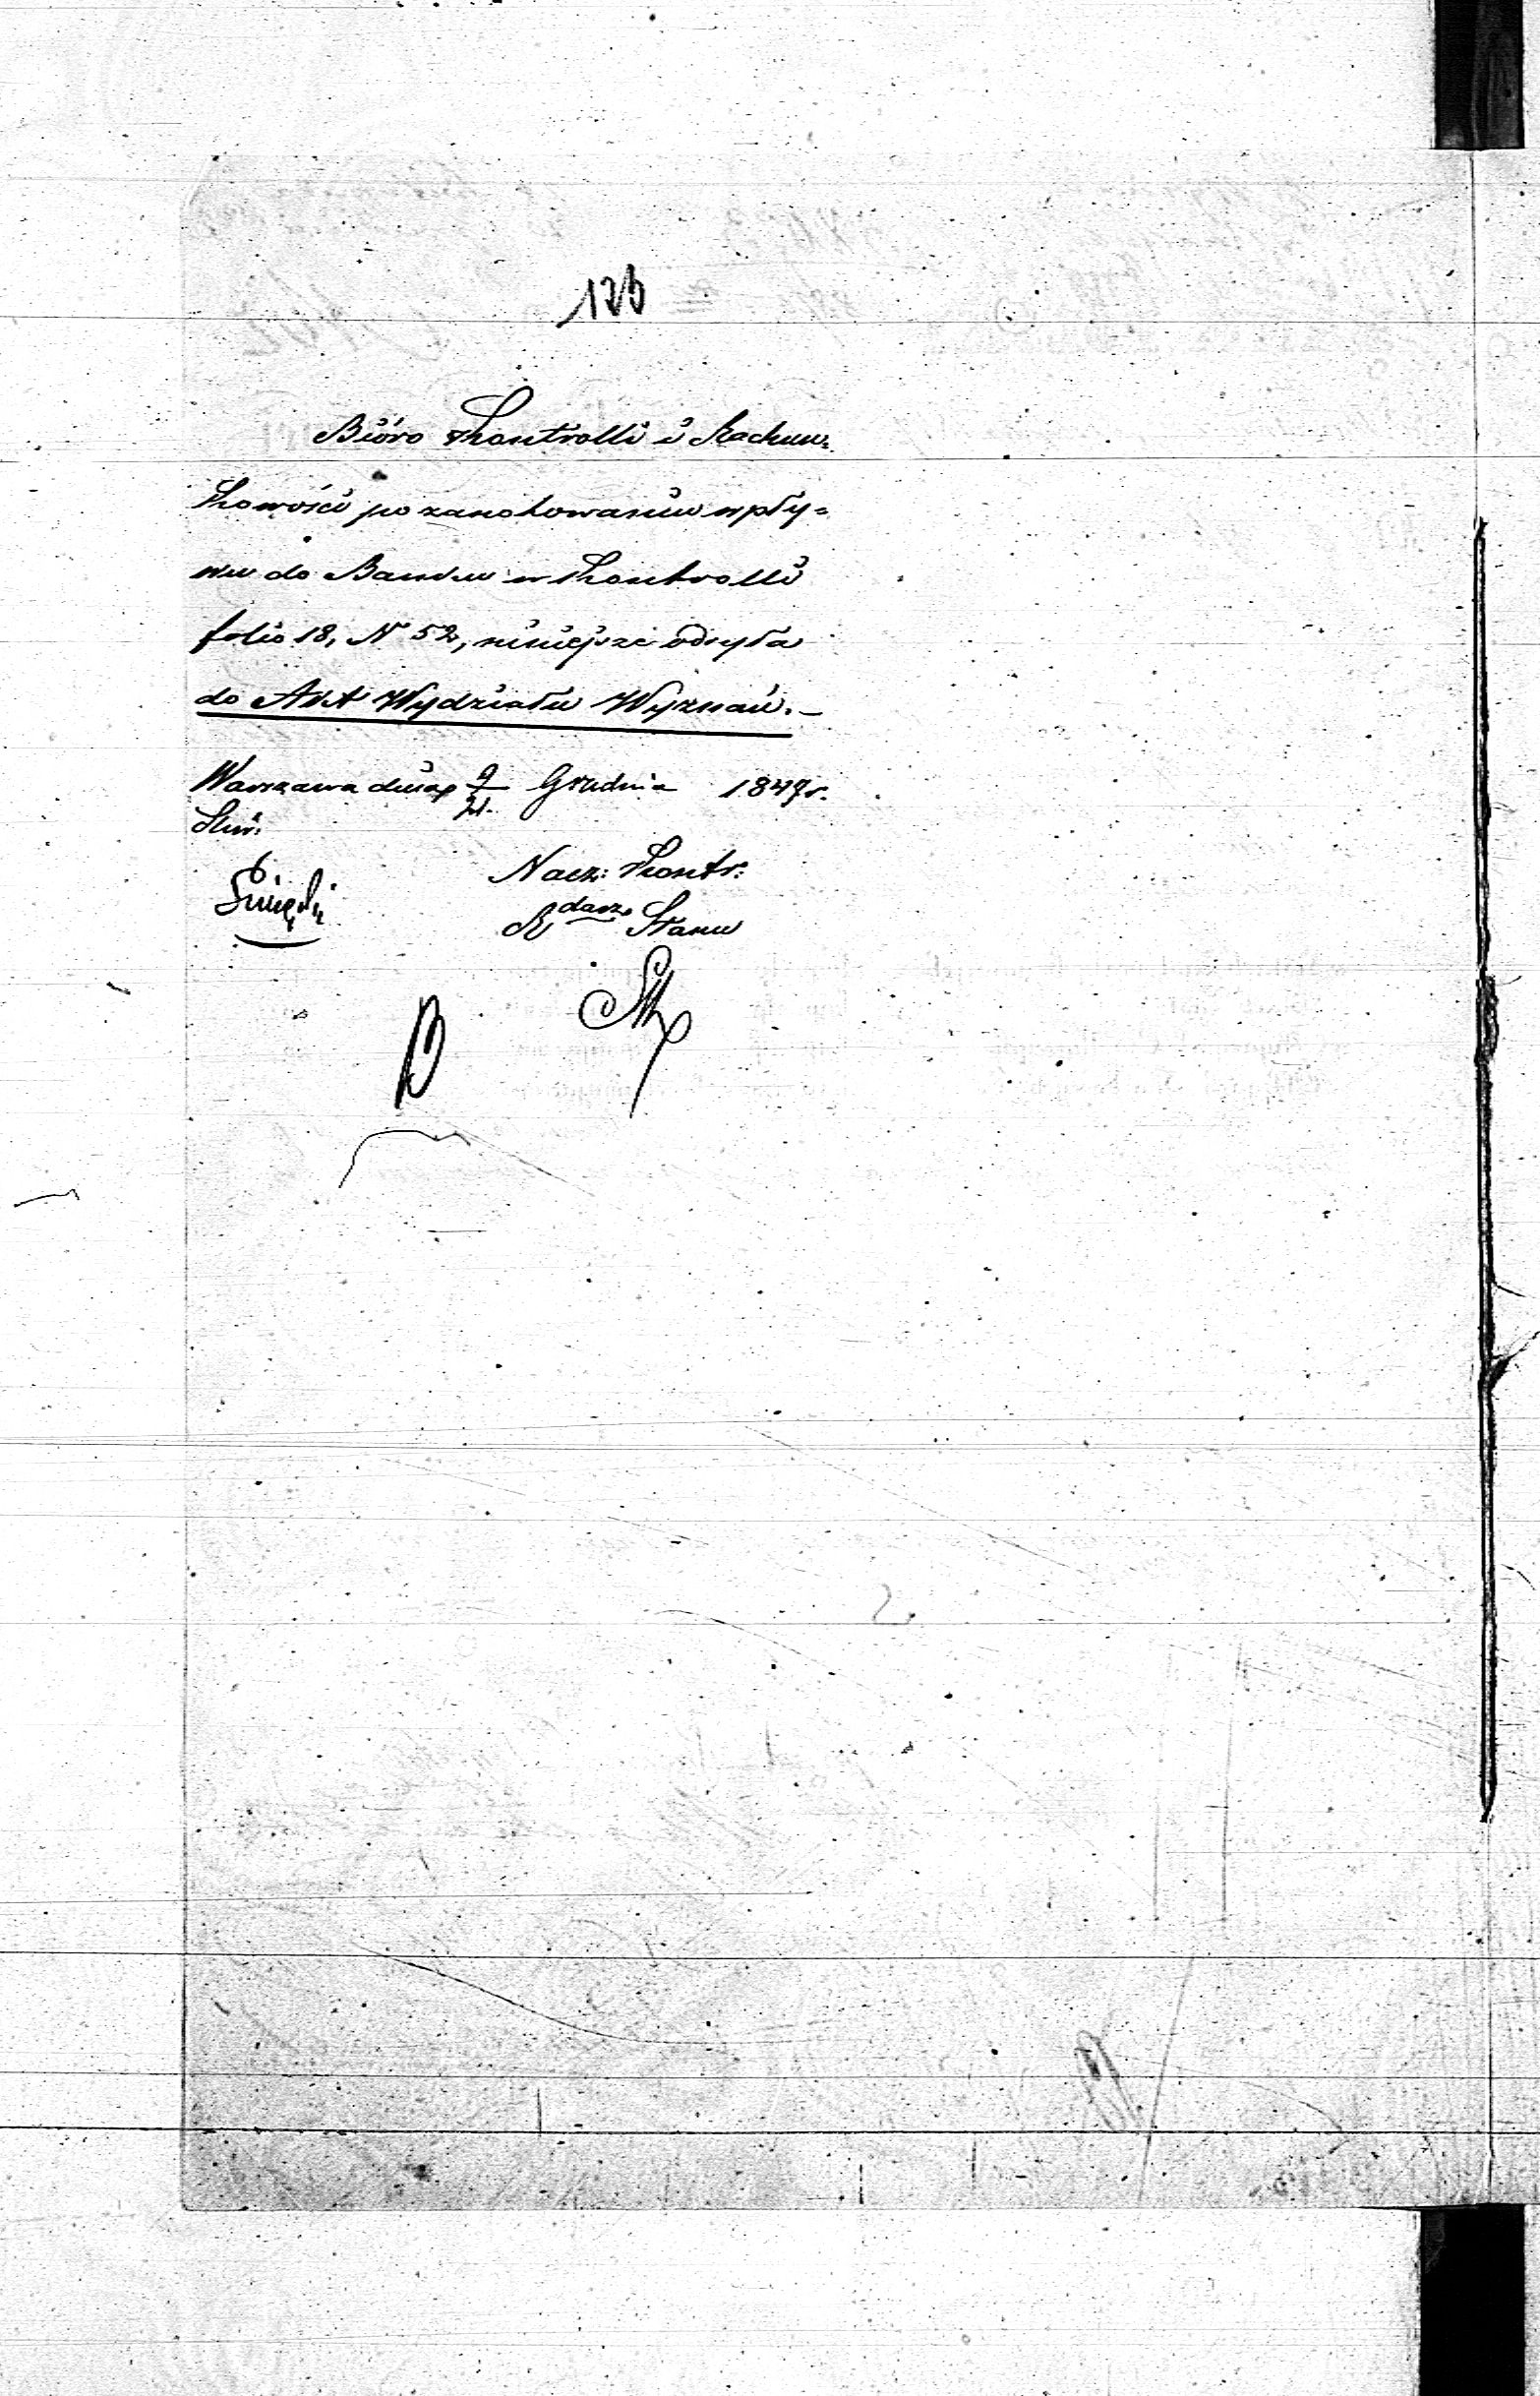 Bióro Kontrolli i Rachun=
kowości po zanotowaniu wpły=
wu do Banku w Kontrolli
folio 18, N 52, niniejsze odsyła
do Akt Wydziału Wyznań.—
Warszawa dnia 9/21 Grudnia 1847 r.
Nacz: Kontr:
R darz Stanu